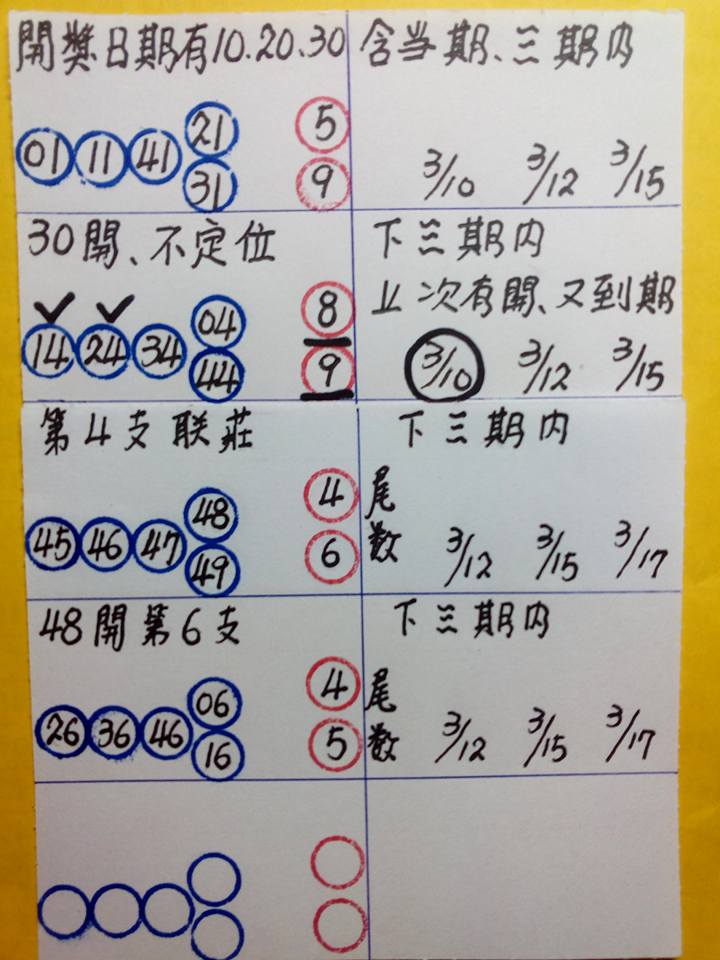 開獎日期有10.20.30
含当期、三期内
21
5
01 11 41
31
9
3/10 3/12 3/15
30開、不定位
下三期内
止次有開、又到期
04
8
14 24 34
44
9
3/10 3/12 3/15
第4支联莊
下三期内
48
4
尾
45 46 47
49
6
数
3/12 3/15 3/17
48開第6支
下三期内
06
4
尾
26 36 46
16
5
数
3/12 3/15 3/17